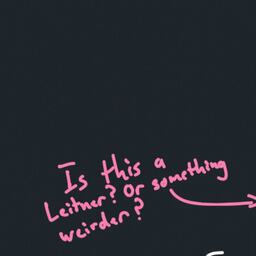 Is this a
Leitner? Or something
weirder?